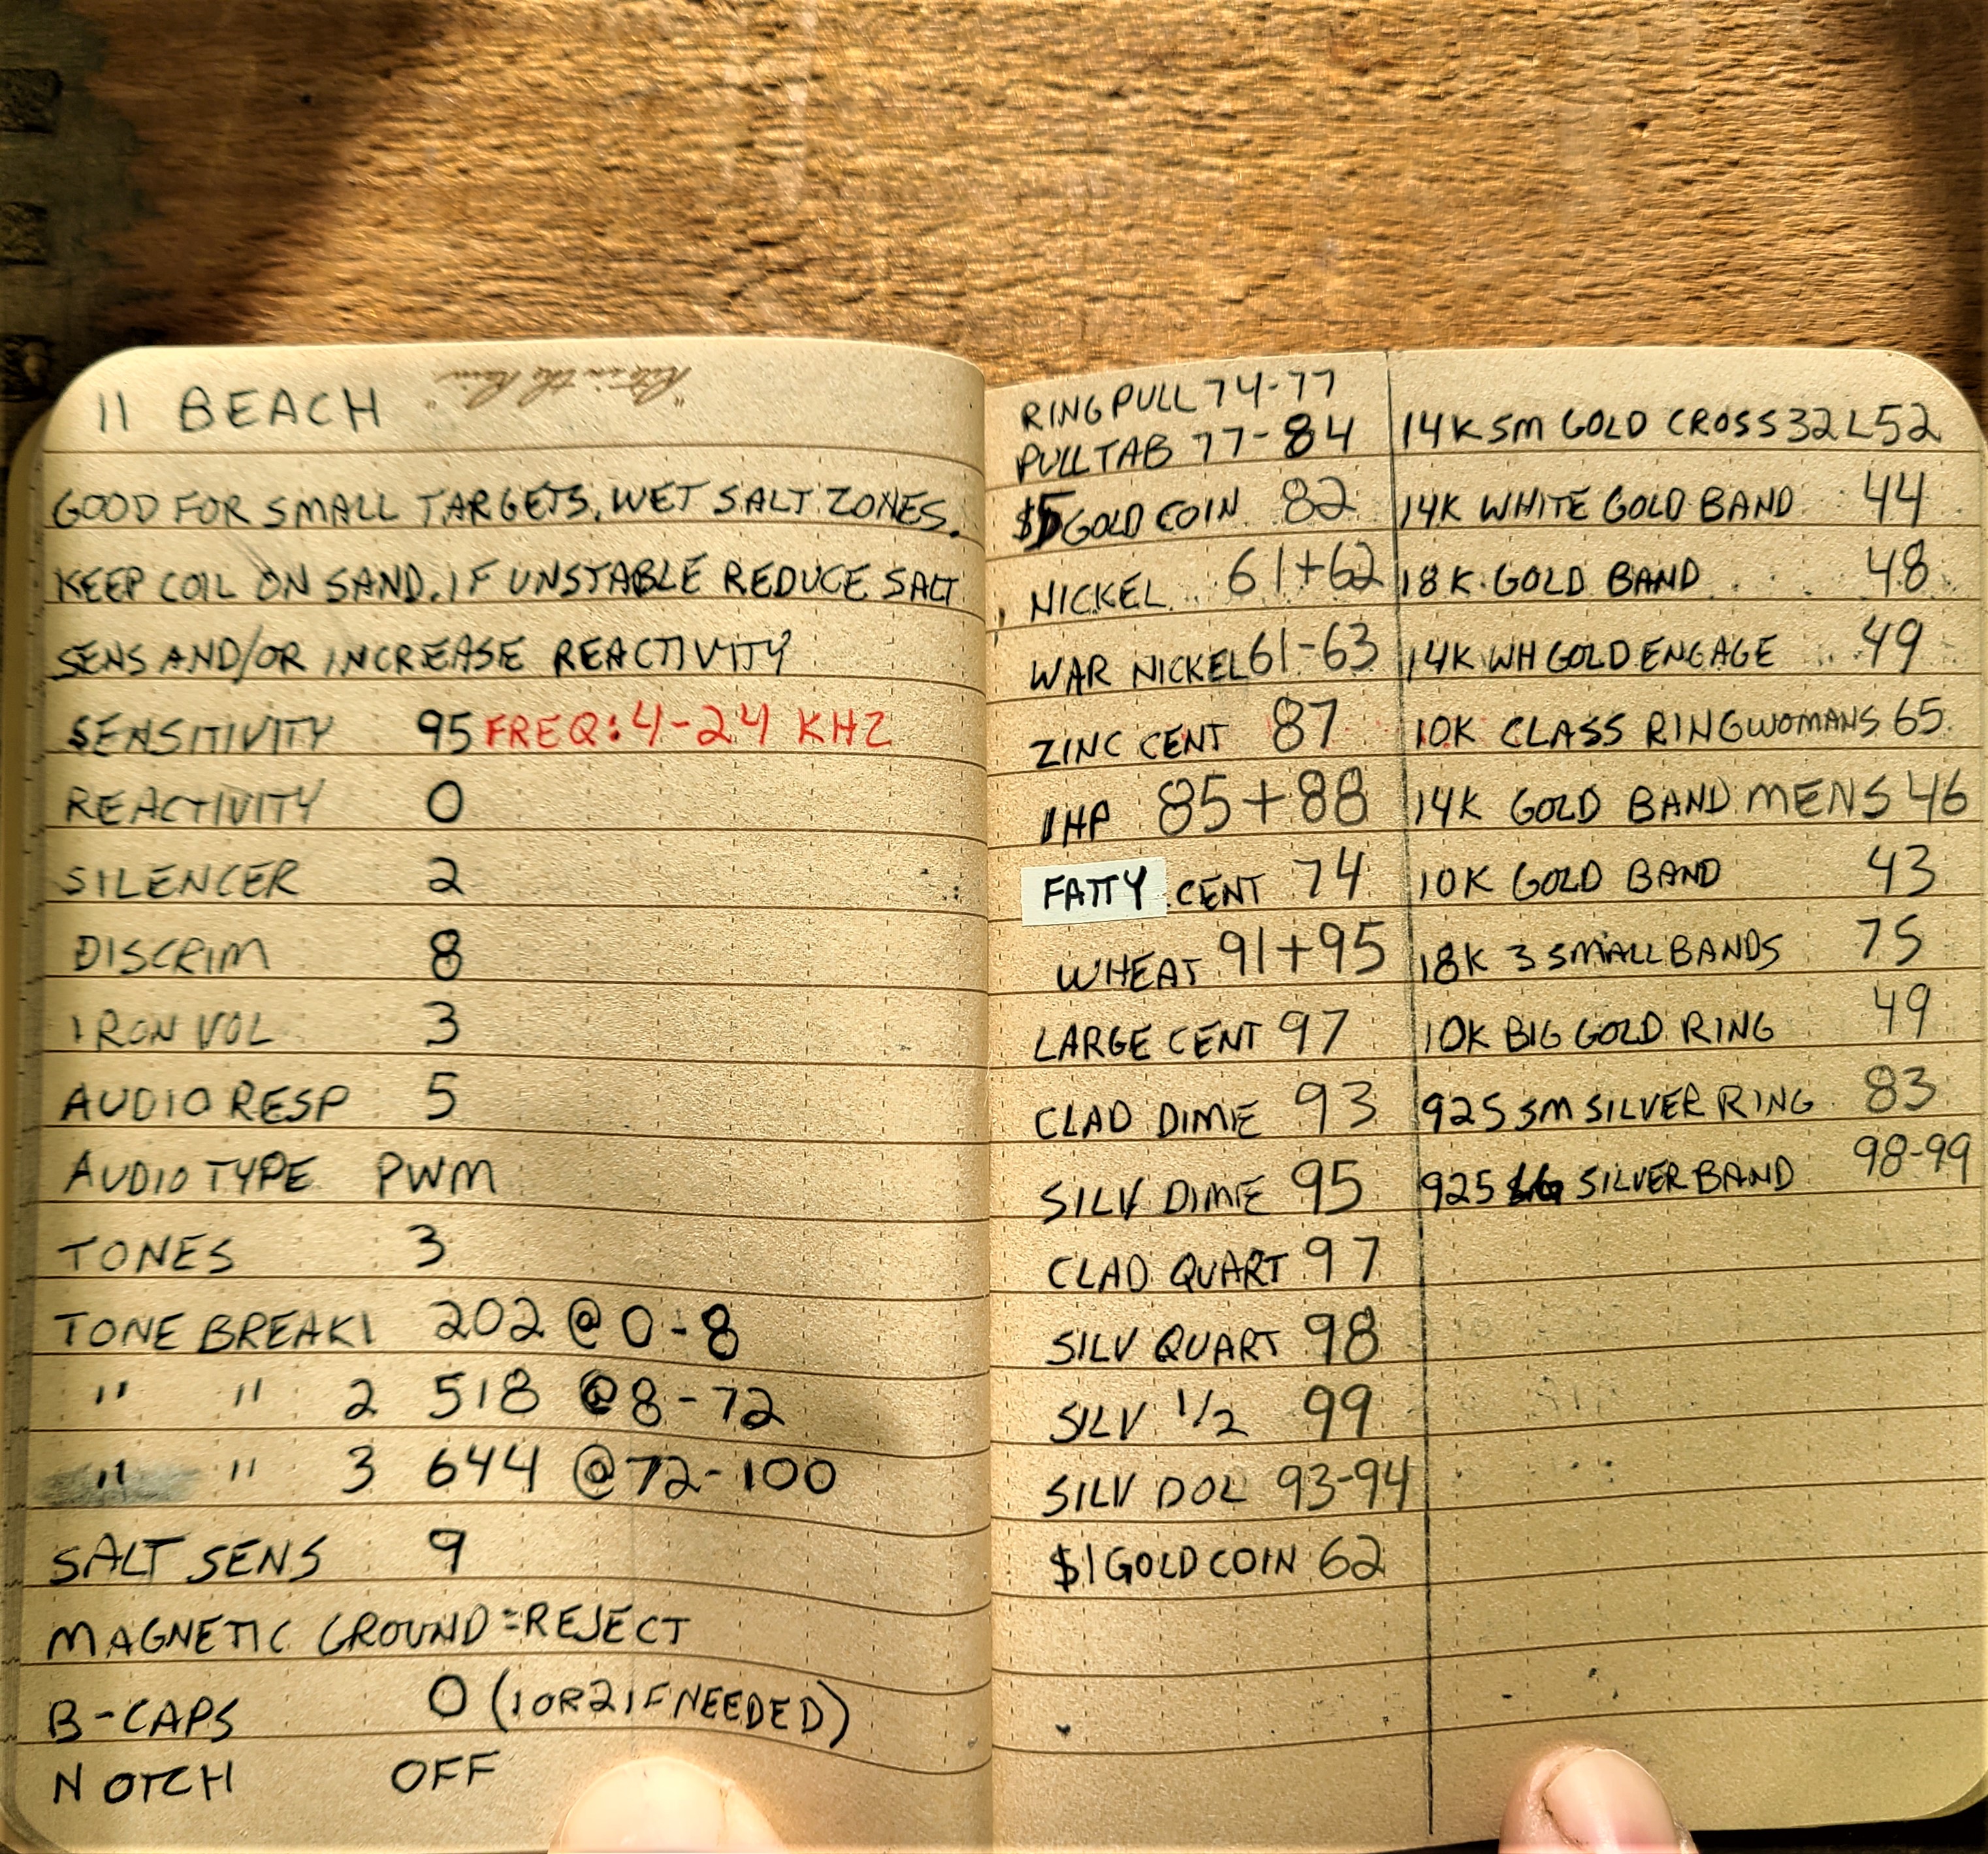 11 BEACH
"Rite in the Rain"
GOOD FOR SMALL TARGETS, WET SALT ZONES.
KEEP COIL ON SAND. IF UNSTABLE REDUCE SALT
SENS AND/OR INCREASE REACTIVITY
SENSITIVITY 95 FREQ: 4-24 KHZ
REACTIVITY 0
SILENCER 2
DISCRIM 8
IRON VOL 3
AUDIO RESP 5
AUDIO TYPE PWM
TONES 3
TONE BREAK 1 202 @ 0-8
" " 2 518 @ 8-72
" " 3 644 @ 72-100
SALT SENS 9
MAGNETIC GROUND = REJECT
B-CAPS 0 (1 OR 2 IF NEEDED)
NOTCH OFF
RING PULL 74-77
PULL TAB 77-84
$5 GOLD COIN 82
NICKEL 61+62
WAR NICKEL 61-63
ZINC CENT 87
IHP 85+88
FATTY CENT 74
WHEAT 91+95
LARGE CENT 97
CLAD DIME 93
SILV DIME 95
CLAD QUART 97
SILV QUART 98
SILV 1/2 99
SILV DOL 93-94
$1 GOLD COIN 62
14K SM GOLD CROSS 32 L52
14K WHITE GOLD BAND 44
18K GOLD BAND 48
14K WH GOLD ENGAGE 49
10K CLASS RING WOMANS 65
14K GOLD BAND MENS 46
10K GOLD BAND 43
18K 3 SMALL BANDS 75
10K BIG GOLD RING 49
925 SM SILVER RING 83
925 LG SILVER BAND 98-99